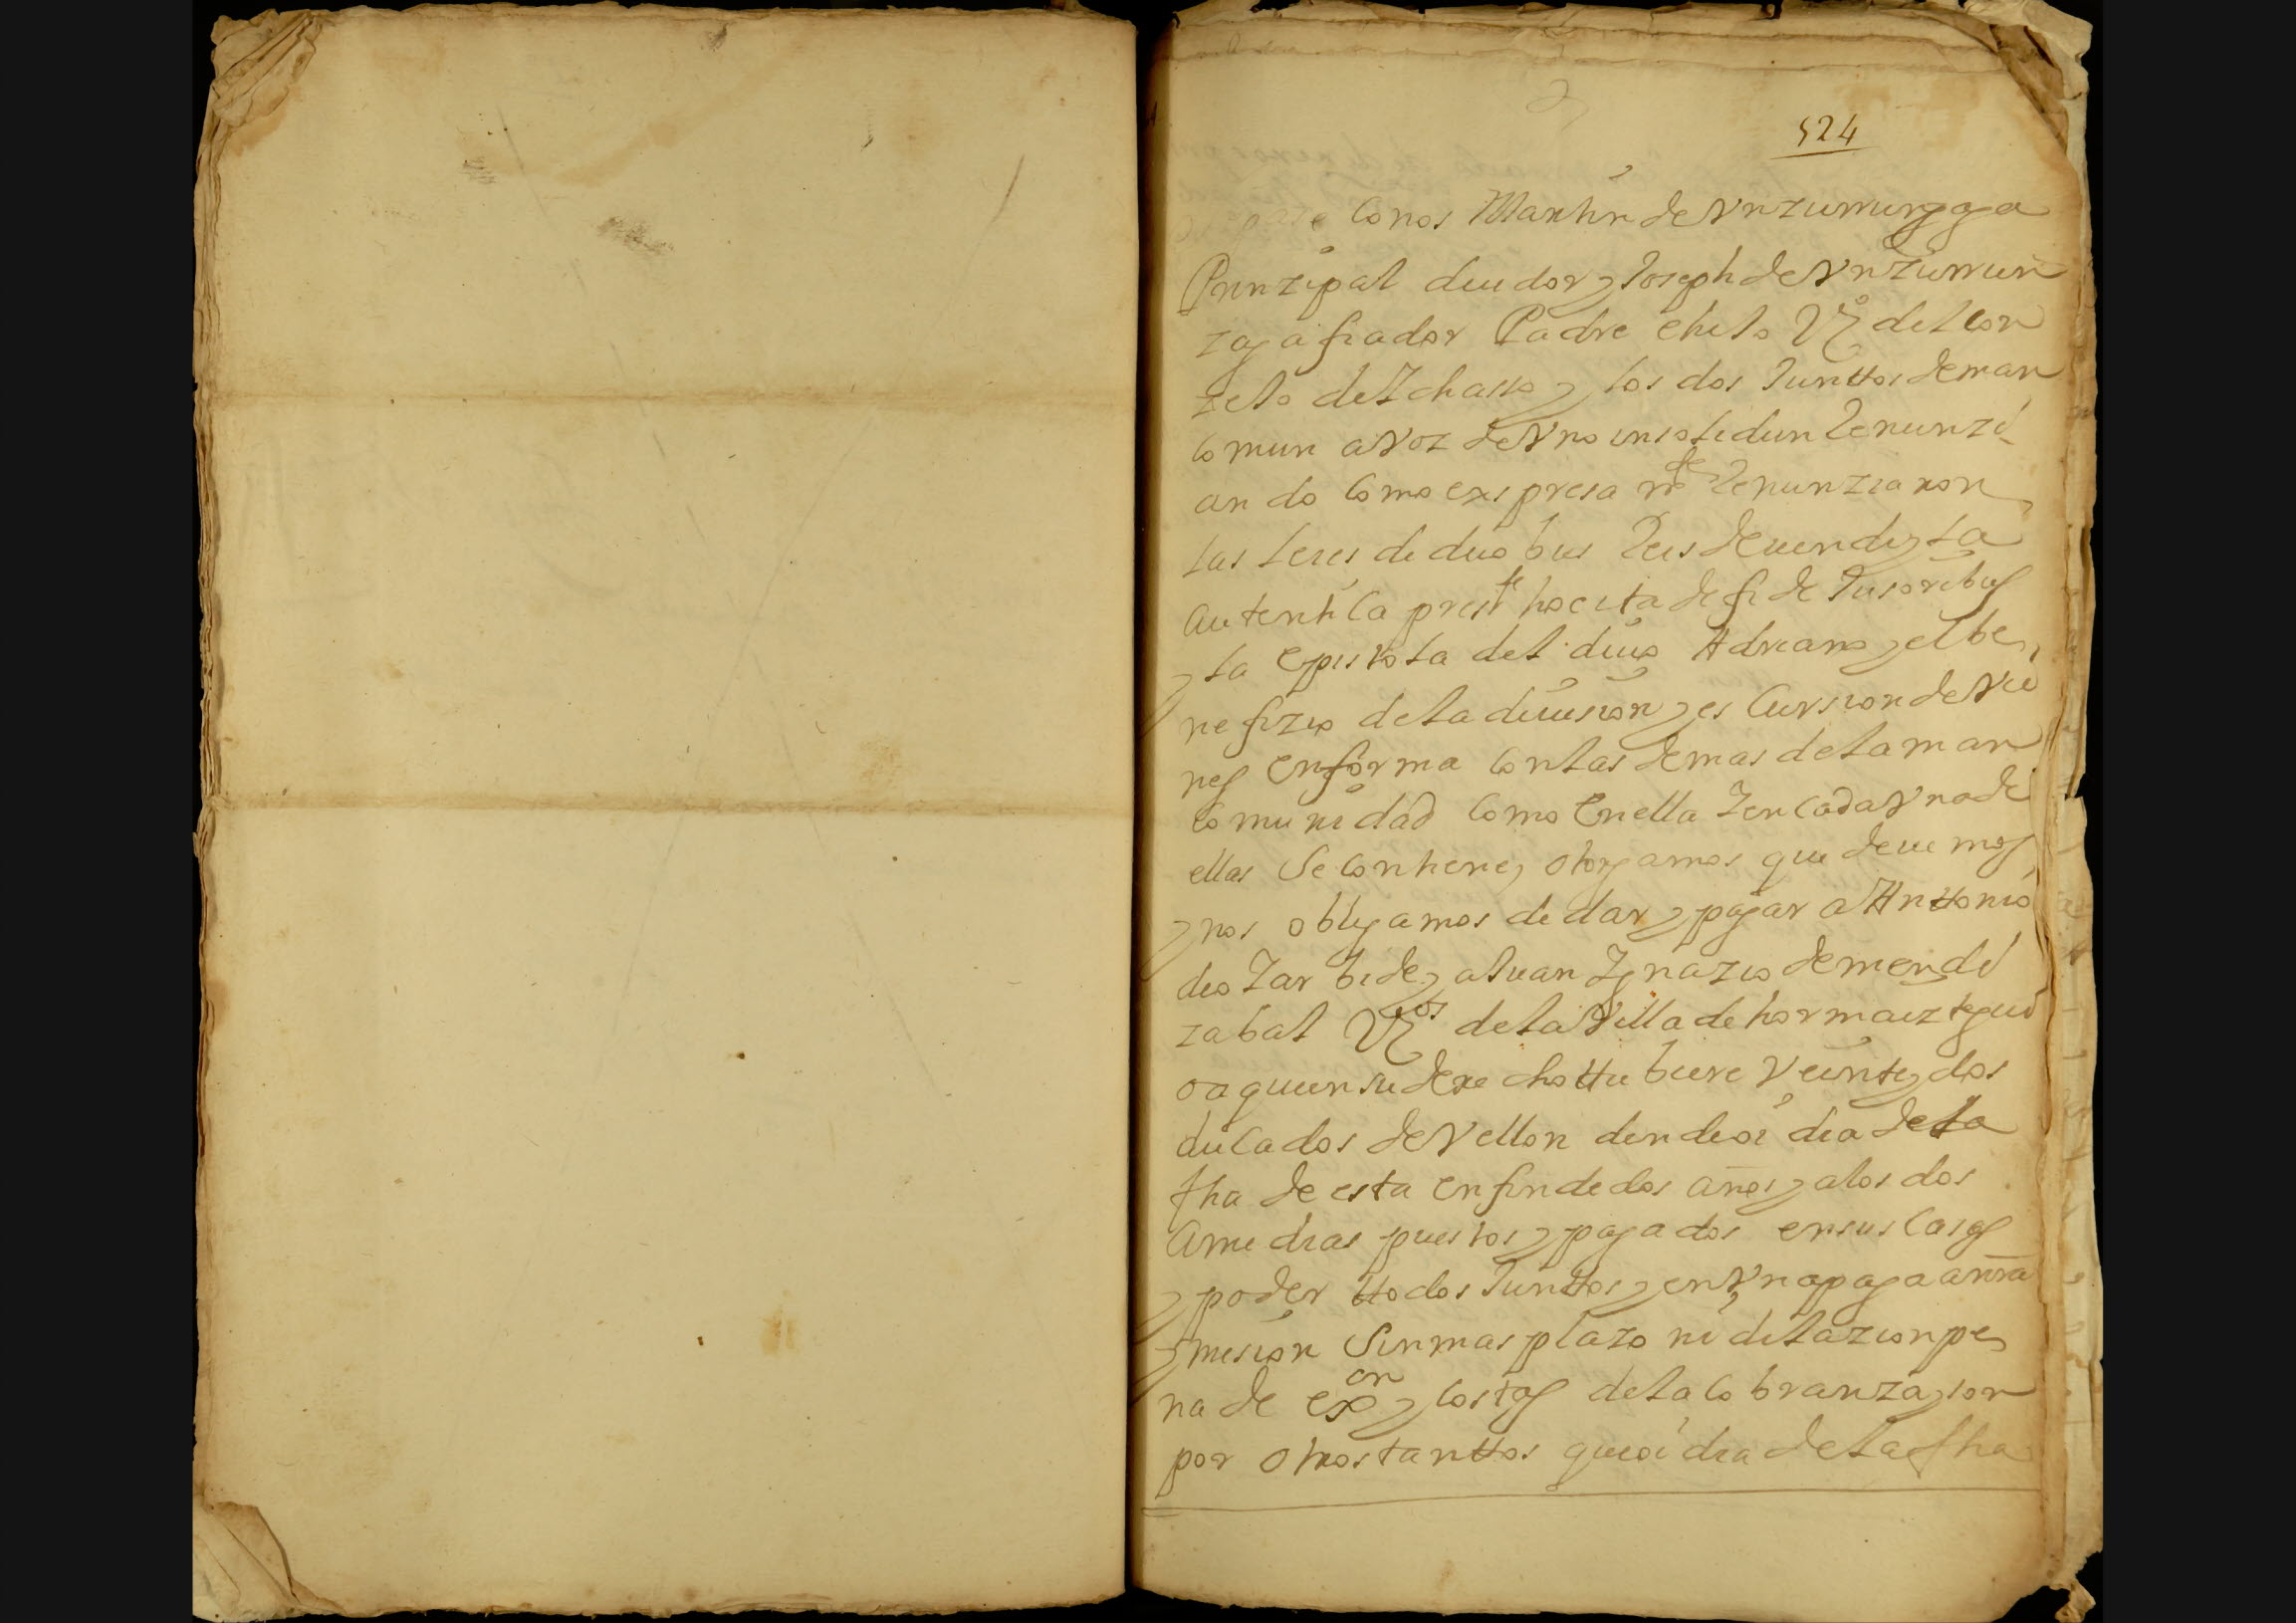 524
Como nos Martin de Vrzumurzaga
Prinzipal deudor y Joseph de Vrzumur
zaga fiador Padre e hijo Vº del con
zejo de Ichasso y los dos Junttos de man
comun a voz de Vno insolidun Renunzi
ando como expresa mte Renunziaron
las leies de duobus Reis devendi y la
autentica preste hocita de fide Jusoribus
y la epistola del diuo Adriano y el be
nefizio de la diuision y escursion de Vie
nes en forma con las demas de la man
comunidad como en ella Y en cada Vna de
ellas Se contiene, otorgamos que deuemos
y nos obligamos de dar y pagar a Anttonio
de oZarbide y a Juan Ygnazio de mendi
zabal Vºs de la Villa de hormaiztegui
o a quien su derecho ttubiere Veinte y dos
ducados de Vellon dende oi dia de la
fha de esta en fin de dos años y a los dos
a medias puestos y pagados en sus casas
y poder ttodos Junttos y en Vna paga a nra
mision Sin mas plazo ni dilazion pe
na de exon y costas de la cobranza y son
por otros tanttos que oi dia de la fha